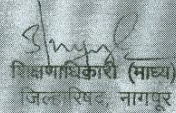 शिक्षणाधिकारी (माध्य)
जिल्हा परिषद, नागपूर